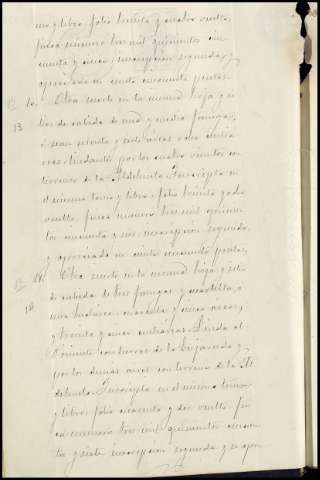 mo y libro, folio treinta y cuatro vuelto,
finca número tres mil quinientos cin
cuenta y cinco, inscripción segunda, y
apreciada en ciento cincuenta pesetas.
Otra suerte en la misma hoja y si
tio de cabida de una y media fanega,
ó sean setenta y siete áreas ocho centiá
reas: lindante por los cuatro vientos con
terrenos de la Inscripta en
el mismo tomo y libro, folio treinta y ocho
vuelto, finca número tres mil quinien
tos cincuenta y seis, inscripción segunda,
y apreciada en ciento cincuenta pesetas.
Otra suerte en la misma hoja y sitio
de cabida de tres fanegas y cuartilla, ó
una hectárea cuarenta y cinco áreas,
y treinta y cinco centiáreas: Linda al
Poniente con tierras de la Encomienda y
por los demás aires con terreno de la
Inscripta en el mismo tomo
y libro, folio cuarenta y dos vuelto, fin
ca número tres mil quinientos cincuen
ta y siete inscripción segunda y se apre
13
18